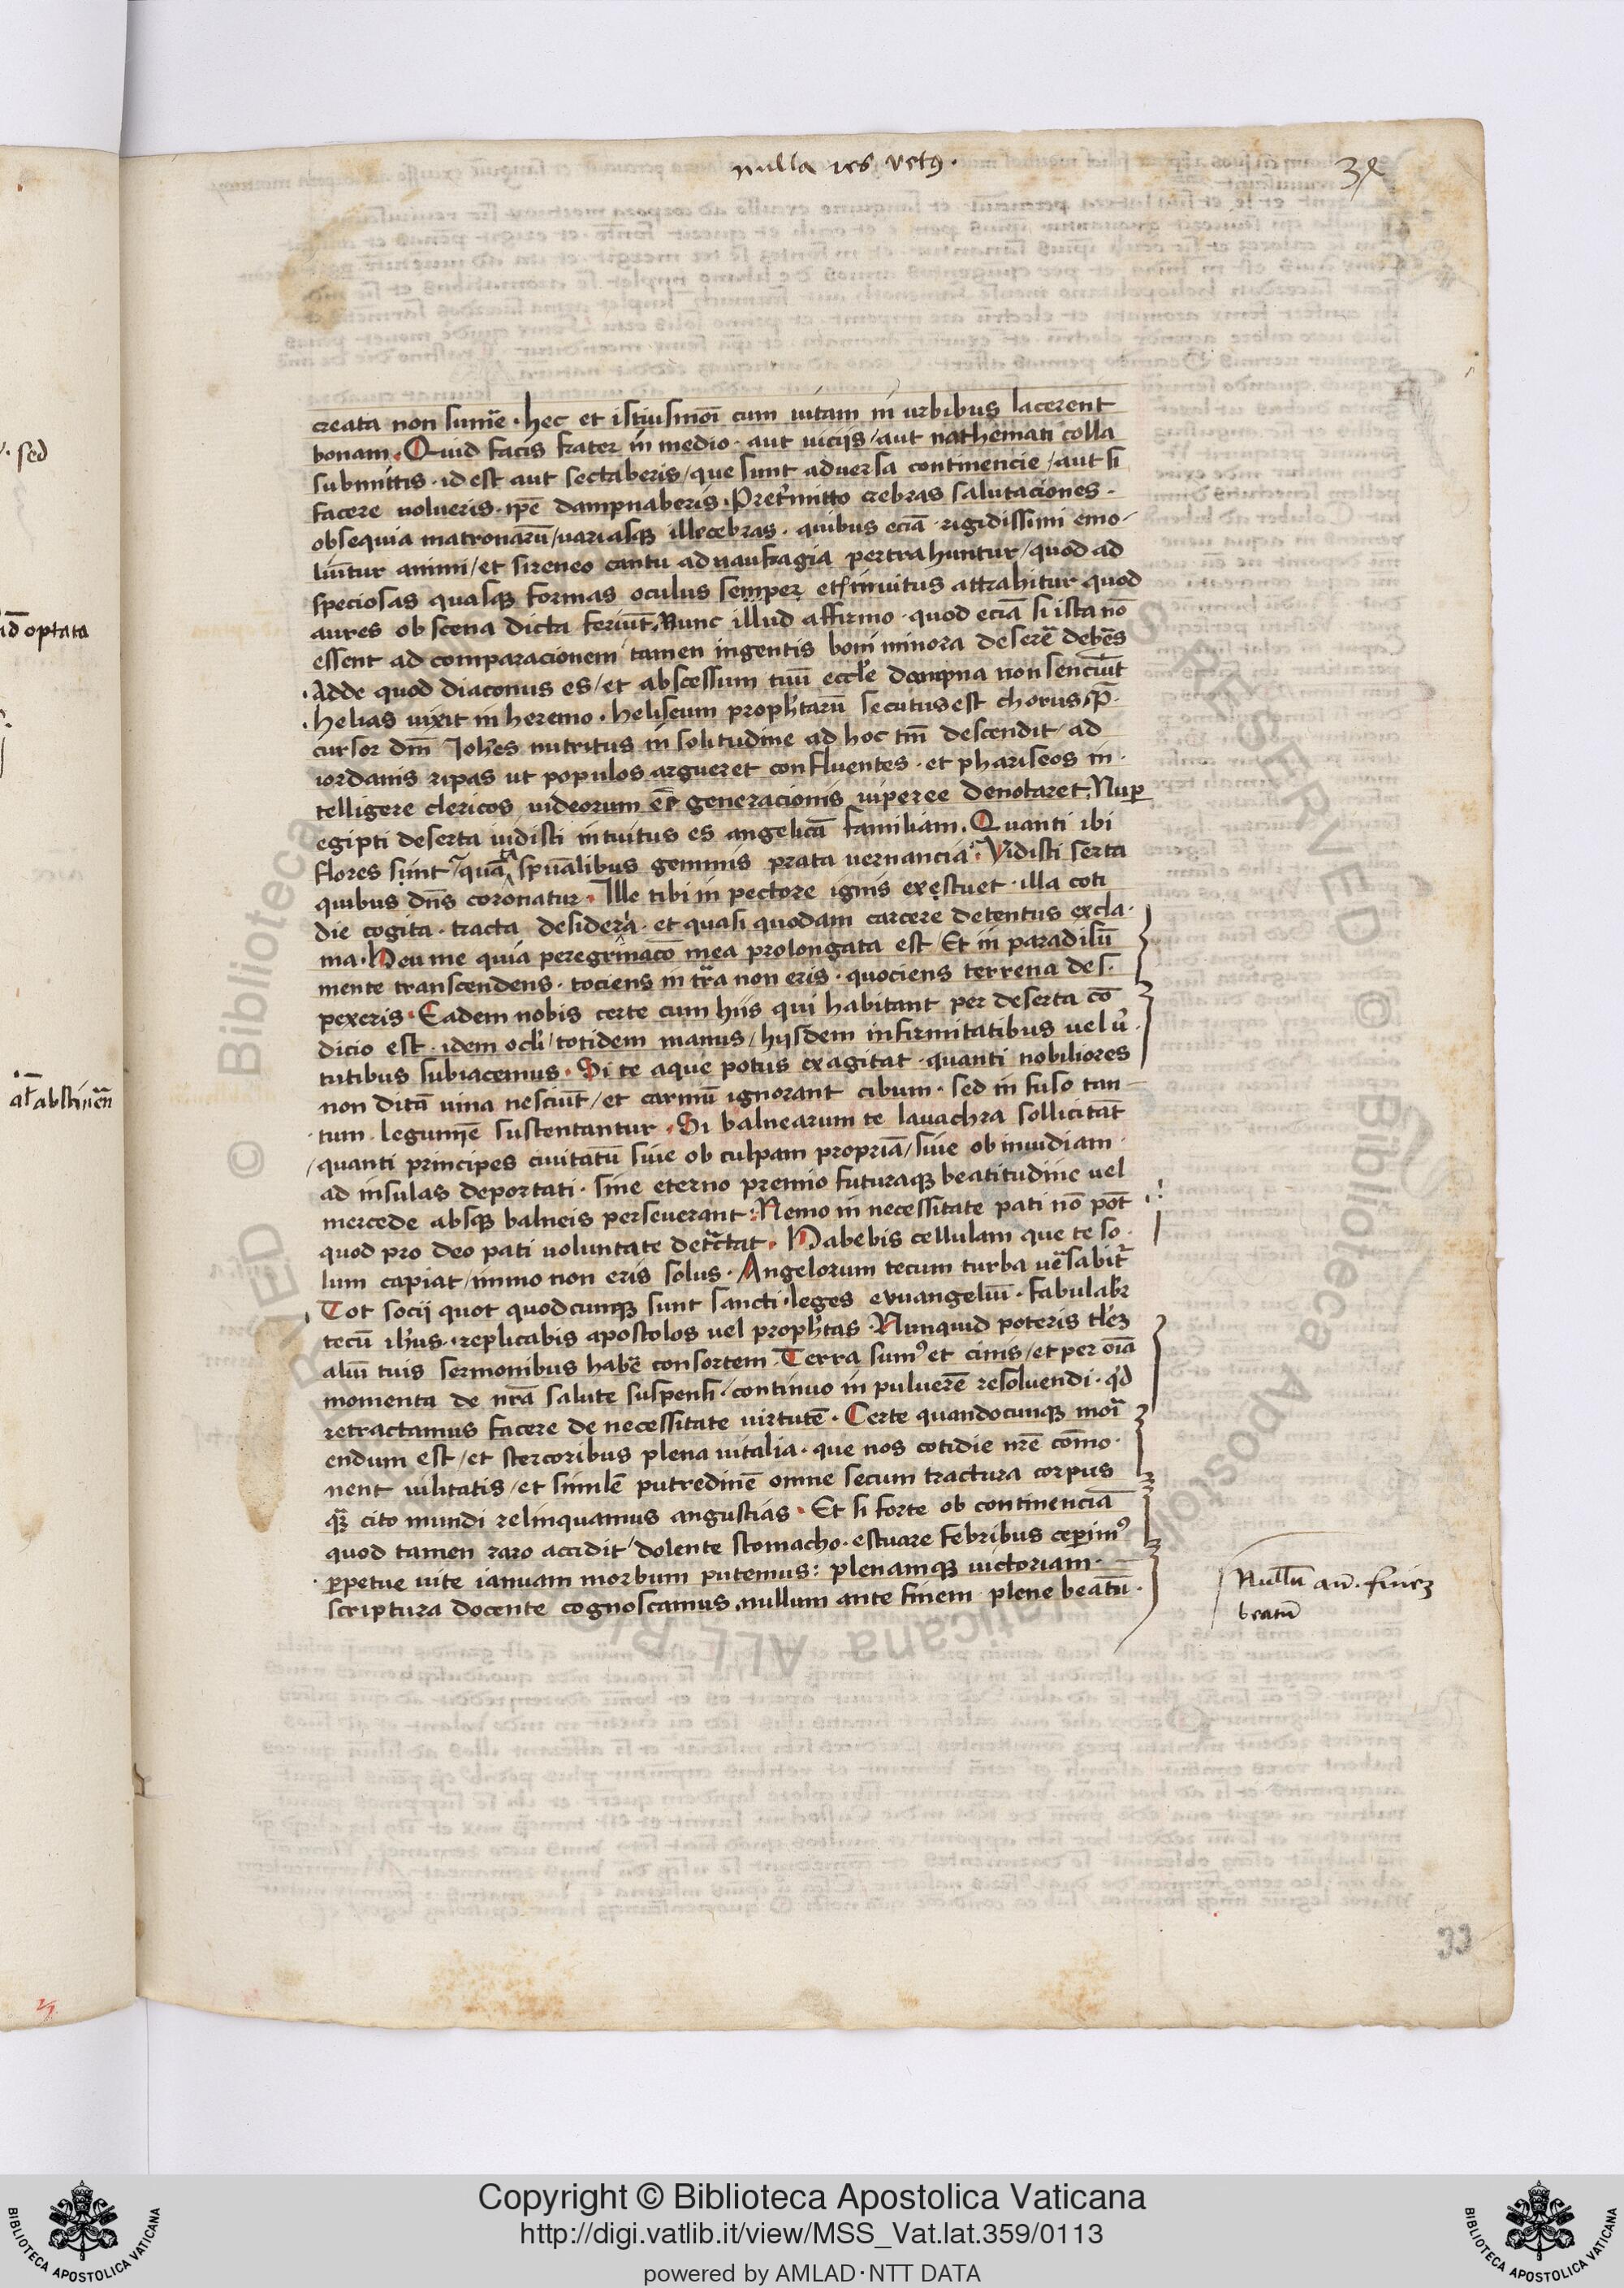 nulla res vetꝰ.
creata non sumē · hec et istiusmōi cum uitam in urbibus lacerent
bonam. Quid facis frater in medio · aut uicijs / aut nathemati colla
submittis · id est aut sectaberis / que sunt aduersa continencie / aut si
facere nolueris · ip̄e dampnaberis. Pret̓mitto crebras salutaciones ·
obsequia matronarū / uariasqꝫ illecebras · quibus eciā rigidissimi emo-
liūtur animi / et sireneo cantu ad naufragia pertrahuntur / quod ad
speciosas quasqꝫ formas oculus semper etsi inuitus attrahitur quod
aures obscena dicta feriūt. Nunc illud affirmo · quod eciā si ista nō
essent ad comparacionem tamen ingentis boni minora deserē debēs
Adde quod diaconus es / et abscessum tuū eccl̓e dampna non senciūt
helias uixit in heremo · heliseum proph̓tarū secutus est chorus. P̄
cursor dn̄i Joh̓es nutritus in solitudine ad hoc tm̄ descendit / ad
iordanis ripas ut populos argueret confluentes · et phariseos in ·
telligere clericos iudeorum ēē generacionis uiperee denotaret. Nuꝑ
egipti deserta uidisti intuitus es angelicā familiam. Quanti ibi
flores sunt / quā sp̄ualibus gemmis prata uernancia. Vidisti serta
quibus dn̄s coronatur. Ille tibi in pectore ignis exęstuet · illa coti
die cogita · tracta desidera · et quasi quodam carcere detentus excla ·
ma. Heu me quia peregrinacō mea prolongata est / Et in paradisū
mente transcendens · tociens in tr̄a non eris · quociens terrena des ·
pexeris. Eadem nobis certe cum hijs qui habitant per deserta cō
dicio est · idem ocl̓i / totidem manus / hijsdem infirmitatibus uel u̓
tutibus subiacemus. Si te aque potus exagitat · quanti nobiliores
non ditā uina nesciūt / et carniū ignorant cibum · sed in fuso tan-
tum · legumē sustentantur. Si balnearum te lauachra sollicitāt
quanti principes ciuitatū siue ob culpam propriā / siue ob inuidiam
ad insulas deportati · sine eterno premio futuraqꝫ beatitudine uel
mercede absqꝫ balneis perseuerant. Nemo in necessitate pati nō pōt
quod pro deo pati uoluntate detrectat. Habebis cellulam que te so ·
lum capiat / immo non eris solus. Angelorum tecum turba uēsabit̄
Tot socij quot quodcunqꝫ sunt sancti · leges evuangeliū · fabulabr̄
tecū ih̓us · replicabis apostolos uel proph̓tas. Nunquid poteris tl̓eꝫ
aliū tuis sermonibus habē consortem. Terra sumꝰ et cinis / et per oīa
momenta de nr̄a salute suspensi · continuo in puluerē resoluendi · qd̓
retractamus facere de necessitate uirtutē. Certe quandocunqꝫ mori
endum est / et stercoribus plena uitalia · que nos cotidie nr̄e cōmo ·
nent uilitatis / et similē putredinē omne secum tractura corpus
qr̄ cito mundi relinquamus angustias. Et si forte ob continenciā
quod tamen raro accidit / dolente stomacho · estuare febribus cepimꝰ
ꝑpetue uite ianuam morbum putemus: plenamqꝫ uictoriam ·
scriptura docente cognoscamus. nullum ante finem plene beatū ·
Nullū an̄. fineꝫ
beatū
· sed
id optata
al̓ abstinen̄
33
Copyright © Biblioteca Apostolica Vaticana
http://digi.vatlib.it/view/MSS_Vat.lat.359/0113
powered by AMLAD·NTT DATA
BIBLIOTECA APOSTOLICA VATICANA
BIBLIOTECA APOSTOLICA VATICANA